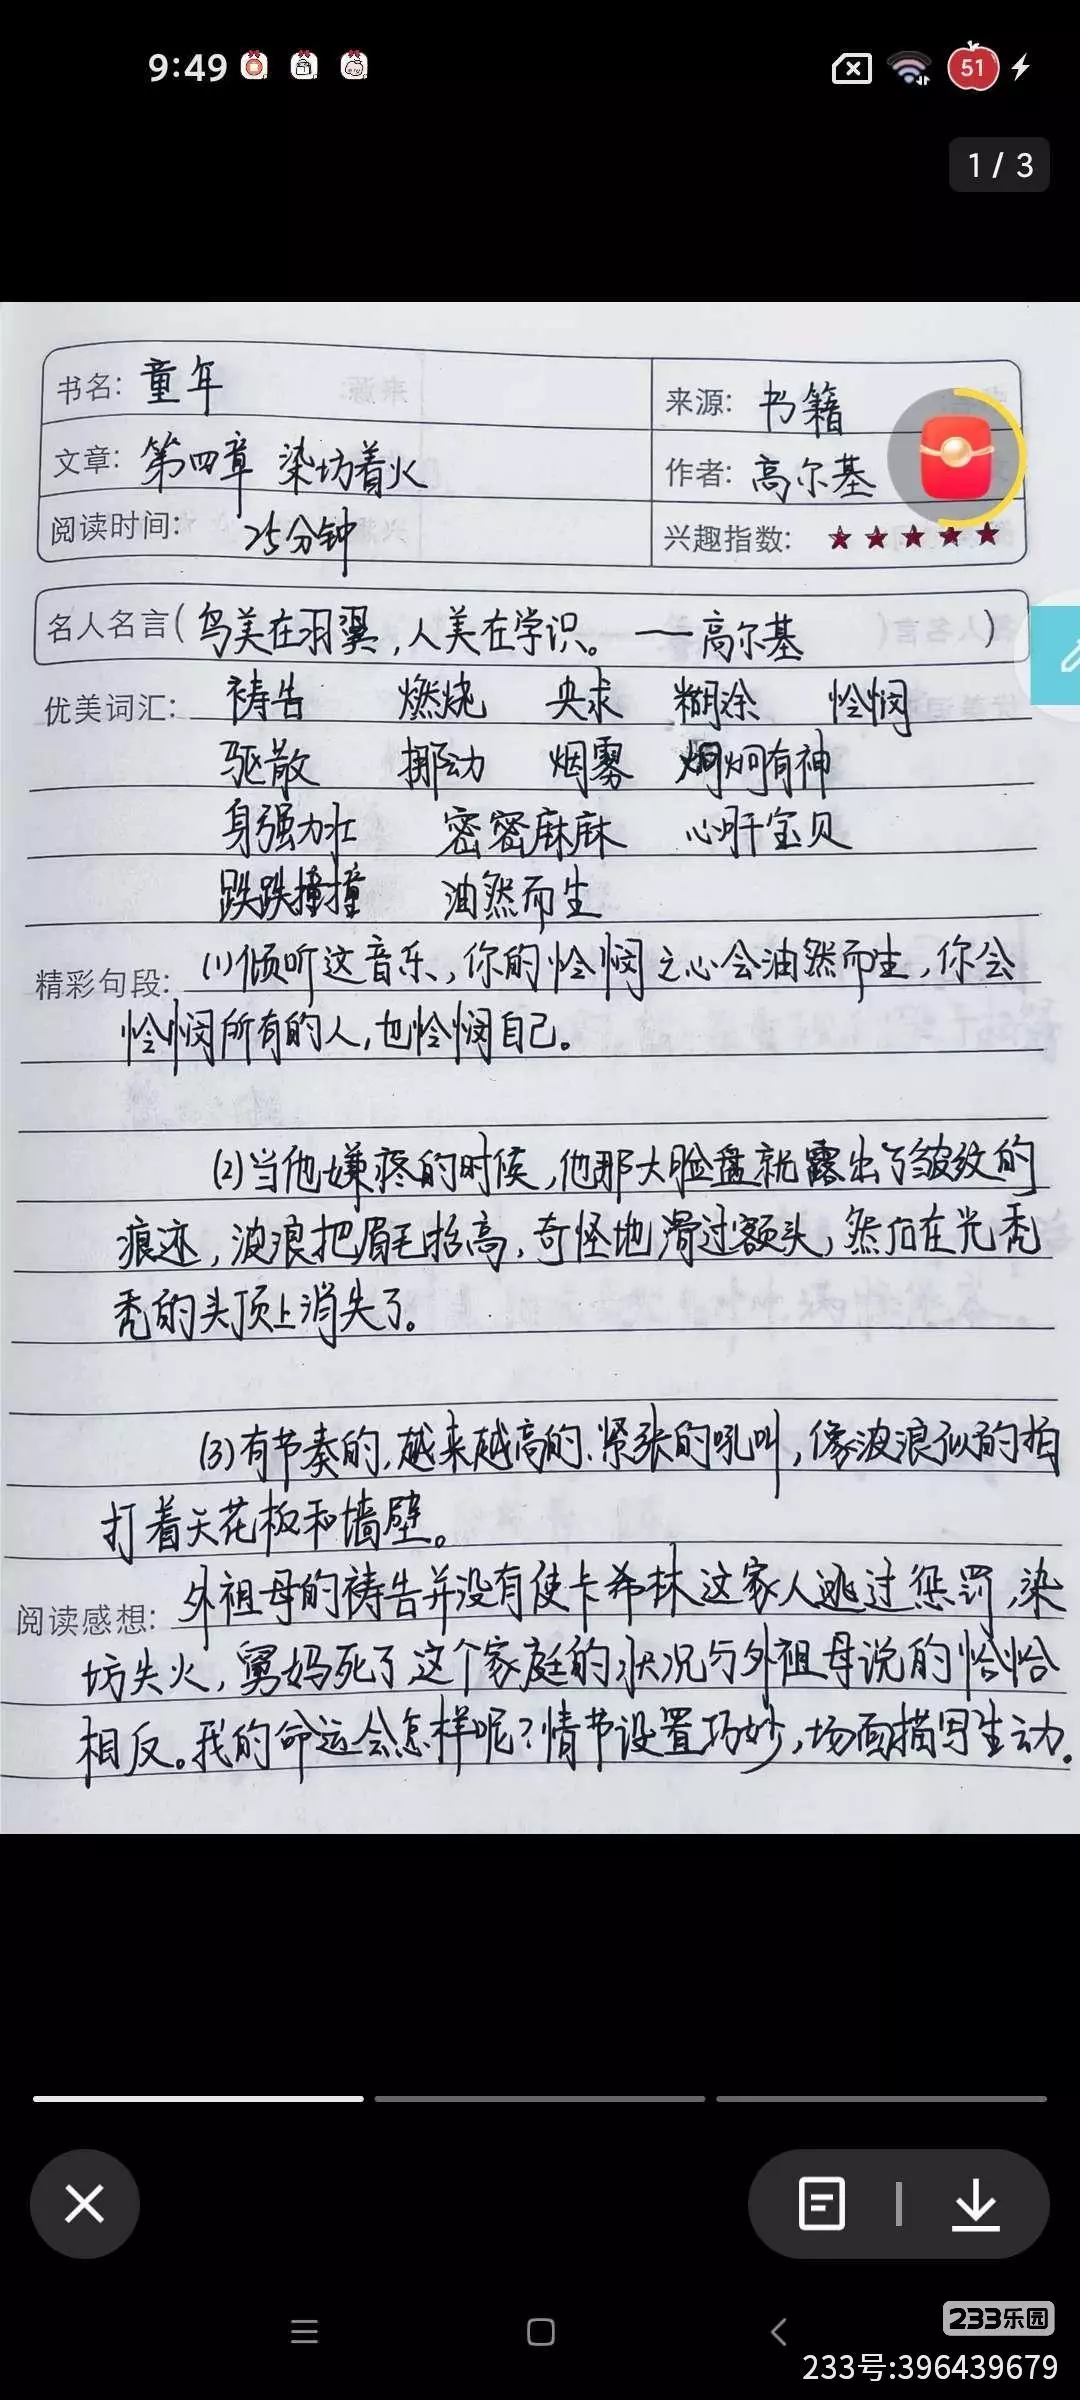 9:49
51
1 / 3
书名: 童年
来源: 书籍
文章: 第四章 染坊着火
作者: 高尔基
阅读时间: 25分钟
兴趣指数: ★★★★★
名人名言(鸟美在羽翼,人美在学识。——高尔基)
优美词汇: 祷告 燃烧 央求 糊涂 怜悯
驱散 挪动 烟雾 炯炯有神
身强力壮 密密麻麻 心肝宝贝
跌跌撞撞 油然而生
精彩句段: (1)倾听这音乐,你的怜悯之心会油然而生,你会
怜悯所有的人,也怜悯自己。
(2)当他嫌疼的时候,他那大脸盘就露出了皱纹的
痕迹,波浪把眉毛抬高,奇怪地滑过额头,然后在光秃
秃的头顶上消失了。
(3)有节奏的,越来越高的、紧张的吼叫,像波浪似的拍
打着天花板和墙壁。
阅读感想: 外祖母的祷告并没有使卡希林这家人逃过惩罚,染
坊失火,舅妈死了这个家庭的状况与外祖母说的恰恰
相反。我的命运会怎样呢?情节设置巧妙,场面描写生动.
233乐园
233号:396439679